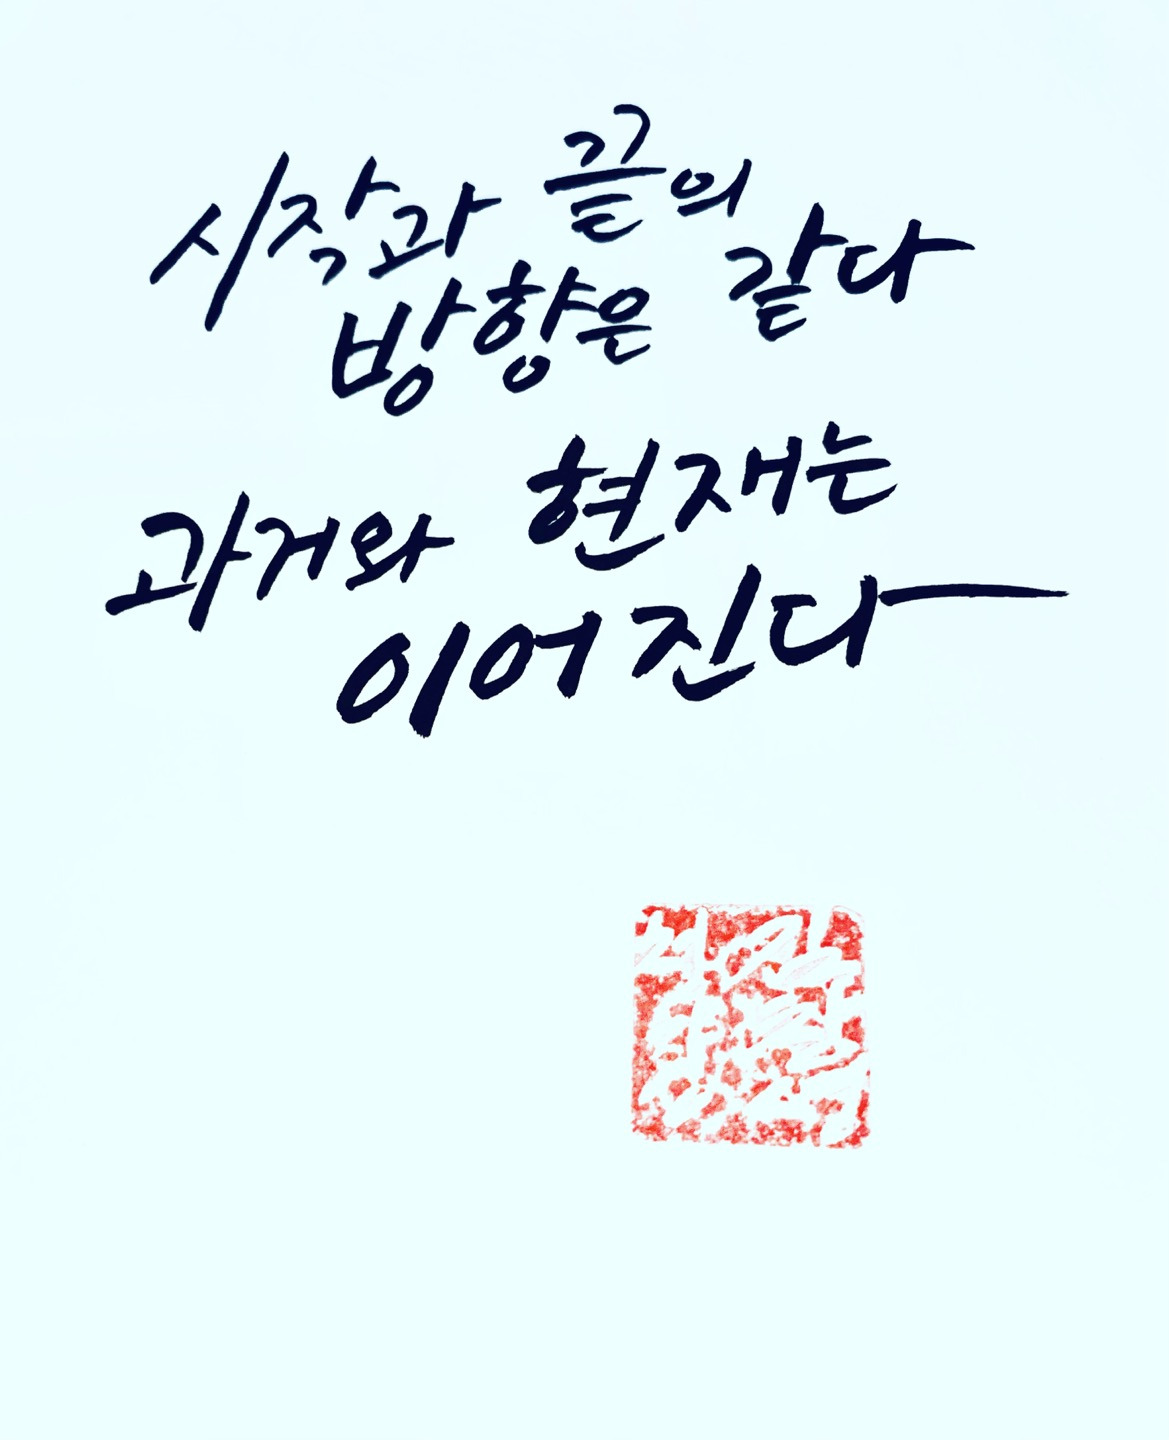 시작과 끝의
방향은 같다
과거와 현재는
이어진다